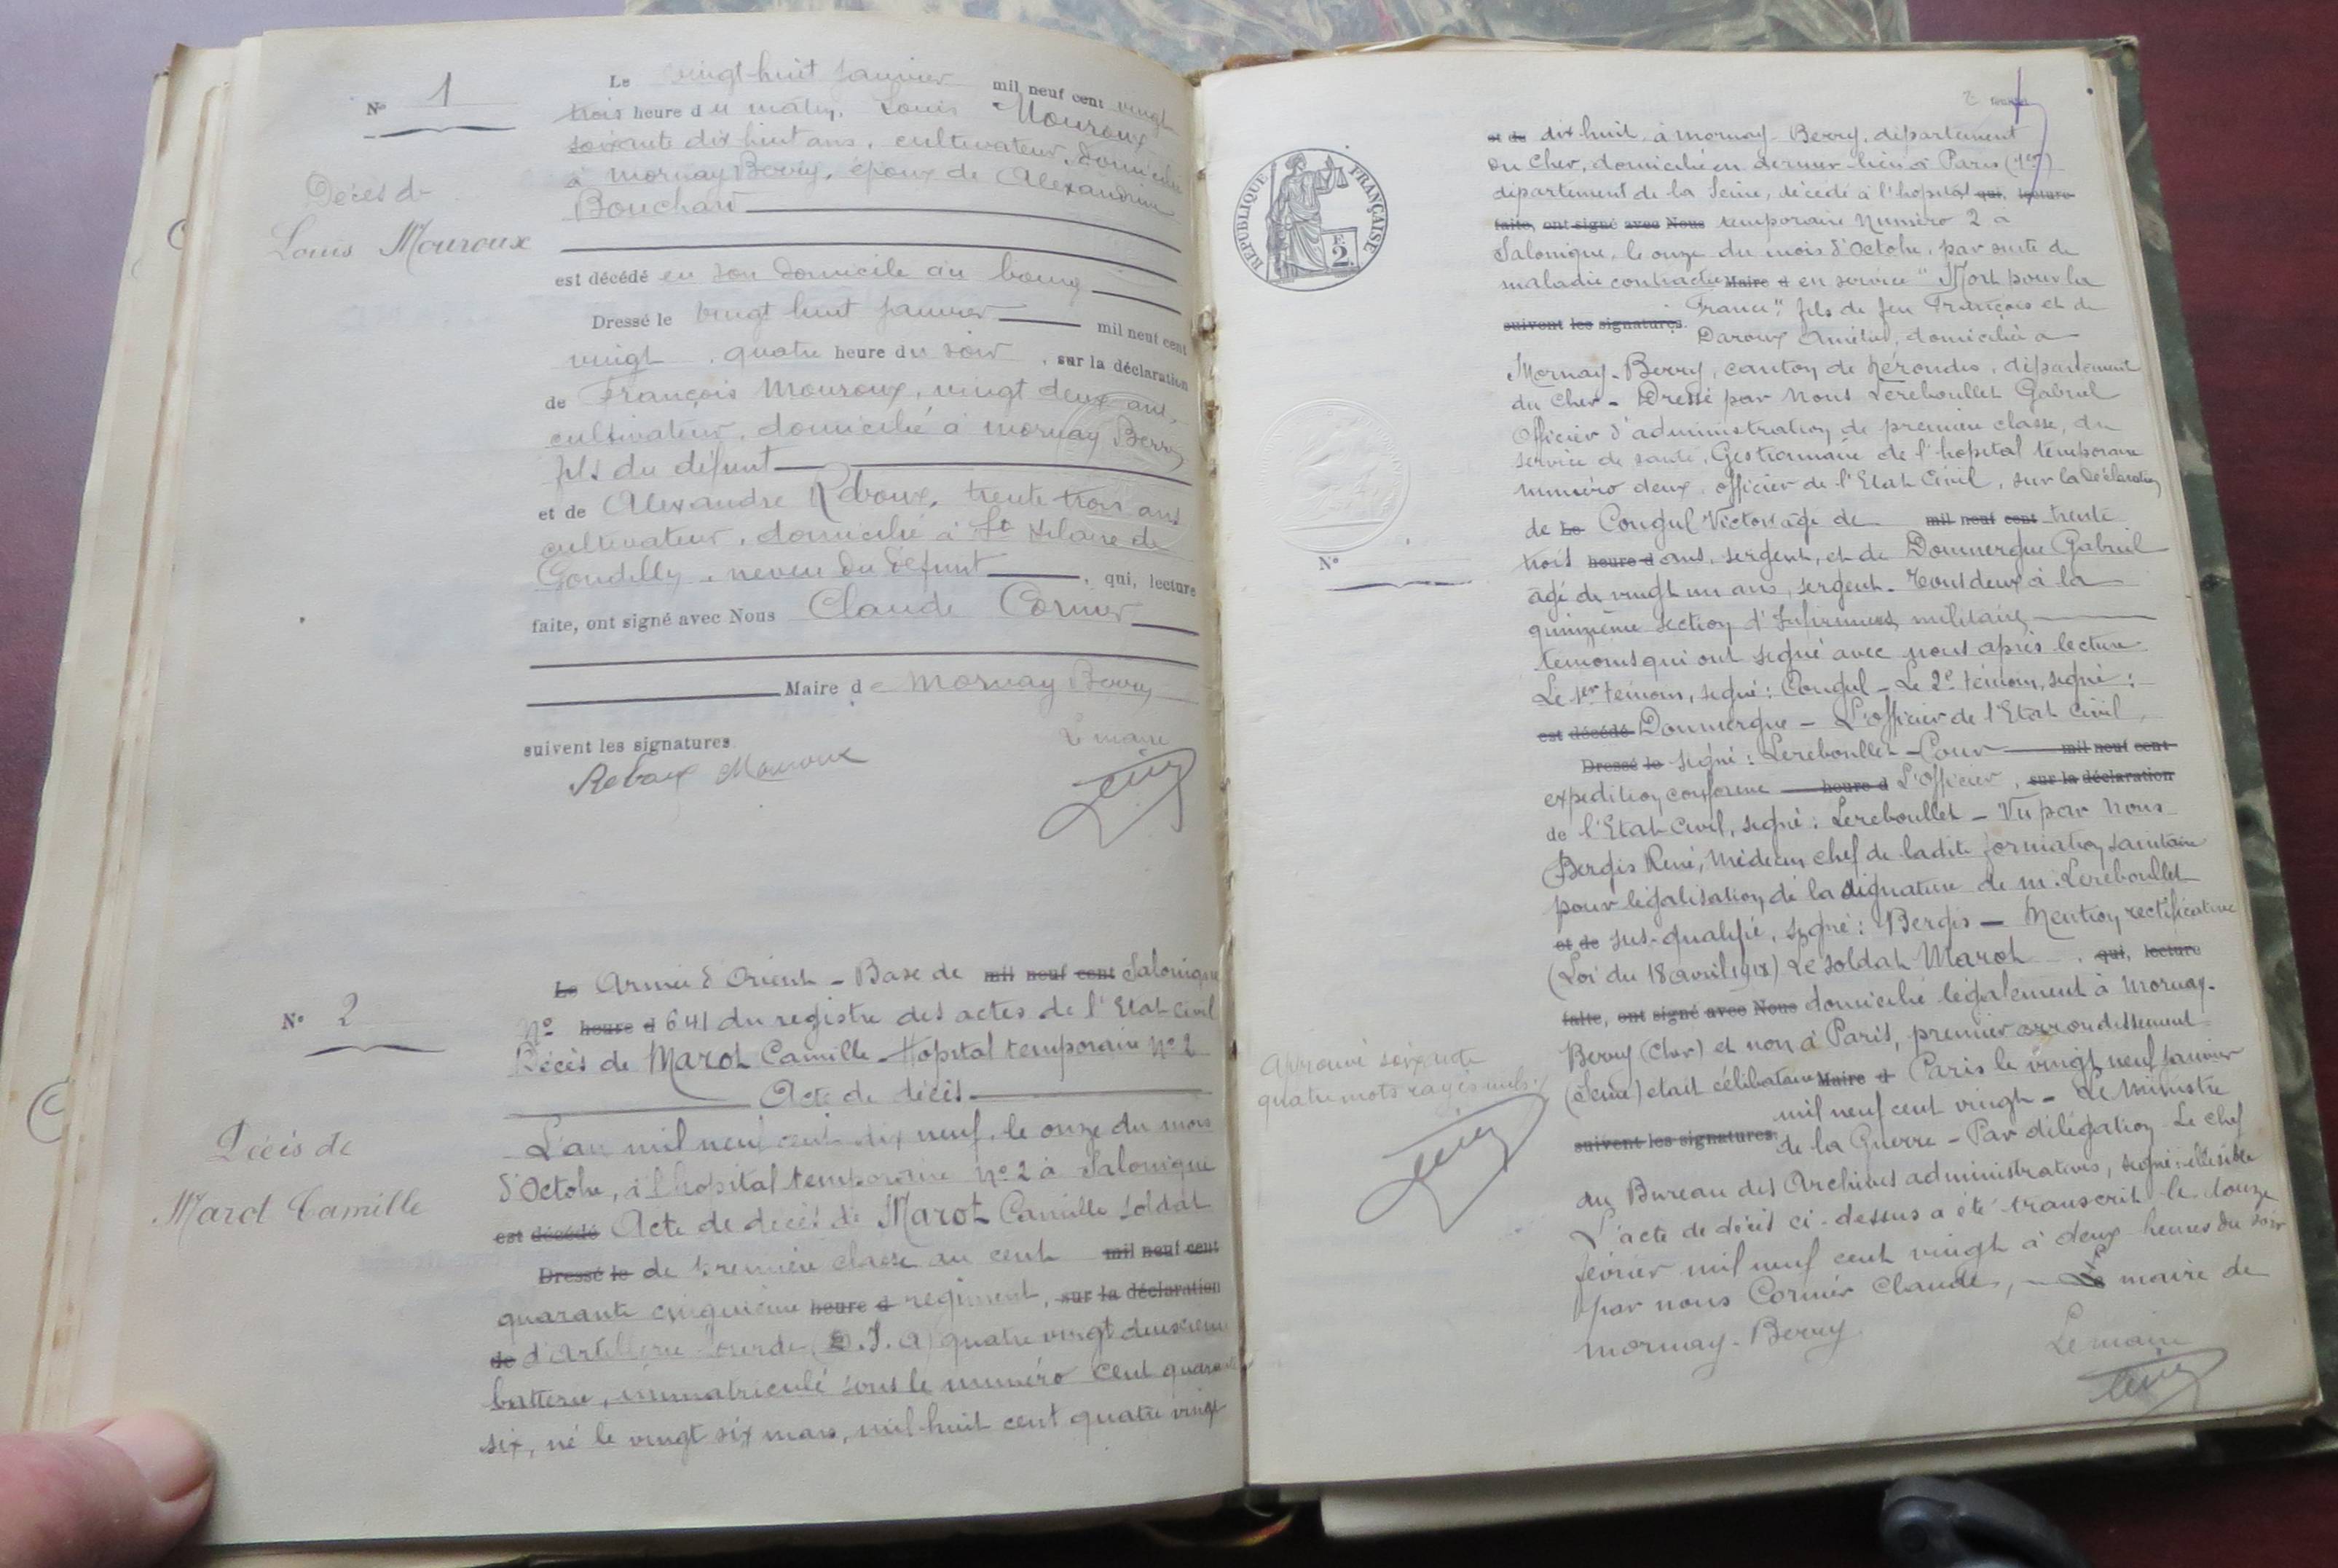 N° 1
Décès d
Louis Mouroux
Le vingt-huit Janvier mil neuf cent vingt
trois heure du matin, Louis Mouroux
soixante dix huit ans, cultivateur, domicilié
à Mornay Berry, époux de Alexandrine
Bouchart
est décédé en son domicile au bourg
Dressé le vingt huit Janvier mil neuf cent
vingt, quatre heure du soir, sur la déclaration
de François Mouroux, vingt deux ans,
cultivateur, domicilié à Mornay Berry
fils du défunt
et de Alexandre Reboux, trente trois ans
cultivateur, domicilié à St Hilaire de
Gondilly, neveu du défunt, qui, lecture
faite, ont signé avec Nous Claude Cornier
Maire de Mornay Berry
suivent les signatures
Le maire
Reboux Mouroux
N° 2
Décès de
Marot Camille
Le Armée d'Orient - Base de mil neuf cent Salonique
N° heure d 641 du registre des actes de l'Etat Civil
Décès de Marot Camille - Hopital temporaire N° 2
Acte de décès
L'an mil neuf cent dix neuf, le onze du mois
d'Octobre, à l'hopital temporaire N° 2 à Salonique
est décédé Acte de décès de Marot Camille soldat
Dressé le de première classe au cent mil neuf cent
quarante cinquième heure d régiment, sur la déclaration
de d'Artillerie Lourde quatre vingt deuxième
batterie, immatriculé sous le numéro cent quarante
six, né le vingt six mars, mil huit cent quatre vingt
2
RÉPUBLIQUE FRANÇAISE
2
N°
et de dix huit, à Mornay-Berry, département
du Cher, domicilié en dernier lieu à Paris (1er)
département de la Seine, décédé à l'hopital qui, lecture
faite, ont signé avec Nous temporaire Numéro 2 à
Salonique, le onze du mois d'Octobre, par suite de
maladie contractée Maire d en service "Mort pour la
France", fils de feu François et de
suivent les signatures.
Daroux Amélie, domiciliée à
Mornay-Berry, canton de Nérondes, département
du Cher - Dressé par Nous Lereboullet Gabriel
Officier d'administration de première classe, du
service de santé, Gestionnaire de l'hopital temporaire
numéro deux, officier de l'Etat Civil, sur la déclaration
de Le Congul Victor âgé de mil neuf cent trente
trois heure d ans, sergent, et de Doumergue Gabriel
âgé de vingt un ans, sergent. Tous deux à la
quinzième section d'Infirmiers militaires
témoins qui ont signé avec nous après lecture
Le 1er témoin, signé: Congul - Le 2e témoin, signé:
est décédé Doumergue - L'officier de l'Etat Civil,
Dressé le signé: Lereboullet - Pour mil neuf cent
expédition conforme heure d L'Officier, sur la déclaration
de l'Etat Civil, signé: Lereboullet - Vu par Nous
Bergis René, Médecin chef de ladite formation sanitaire
pour légalisation de la signature de M. Lereboullet
et de sus-qualifié, signé: Bergis - Mention rectificative
(Loi du 18 avril 1918) Le soldat Marot, qui, lecture
faite, ont signé avec Nous domicilié légalement à Mornay-
Berry (Cher) et non à Paris, premier arrondissement
(Seine) était célibataire Maire d Paris le vingt neuf Janvier
mil neuf cent vingt - Le Ministre
suivent les signatures. de la Guerre - Par délégation Le chef
du Bureau des Archives administratives, signé: illisible
L'acte de décès ci-dessus a été transcrit le douze
février mil neuf cent vingt à deux heures du soir
par nous Cornier Claude, maire de
Mornay-Berry
Le maire
Approuvé soixante
quatre mots rayés nuls.